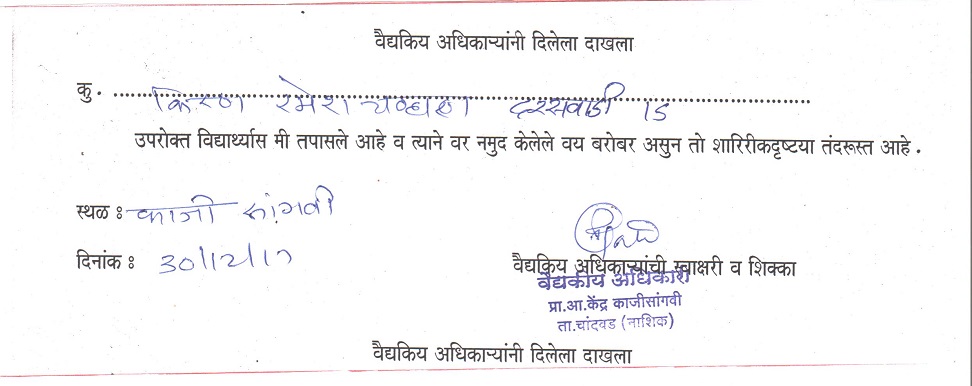 वैद्यकिय अधिकाऱ्यांनी दिलेला दाखला
कु. किरण रमेश चव्हाण दरसवाडी
उपरोक्त विद्यार्थ्यास मी तपासले आहे व त्याने वर नमुद केलेले वय बरोबर असुन तो शारिरीकदृष्टया तंदरूस्त आहे.
स्थळ : काजी सांगवी
दिनांक : 30/12/17
वैद्यकिय अधिकाऱ्यांची स्वाक्षरी व शिक्का
वैद्यकीय अधिकारी
प्रा.आ.केंद्र काजीसांगवी
ता.चांदवड (नाशिक)
वैद्यकीय अधिकाऱ्यांनी दिलेला दाखला